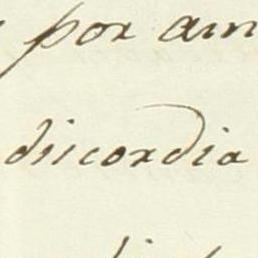 por am
discordia